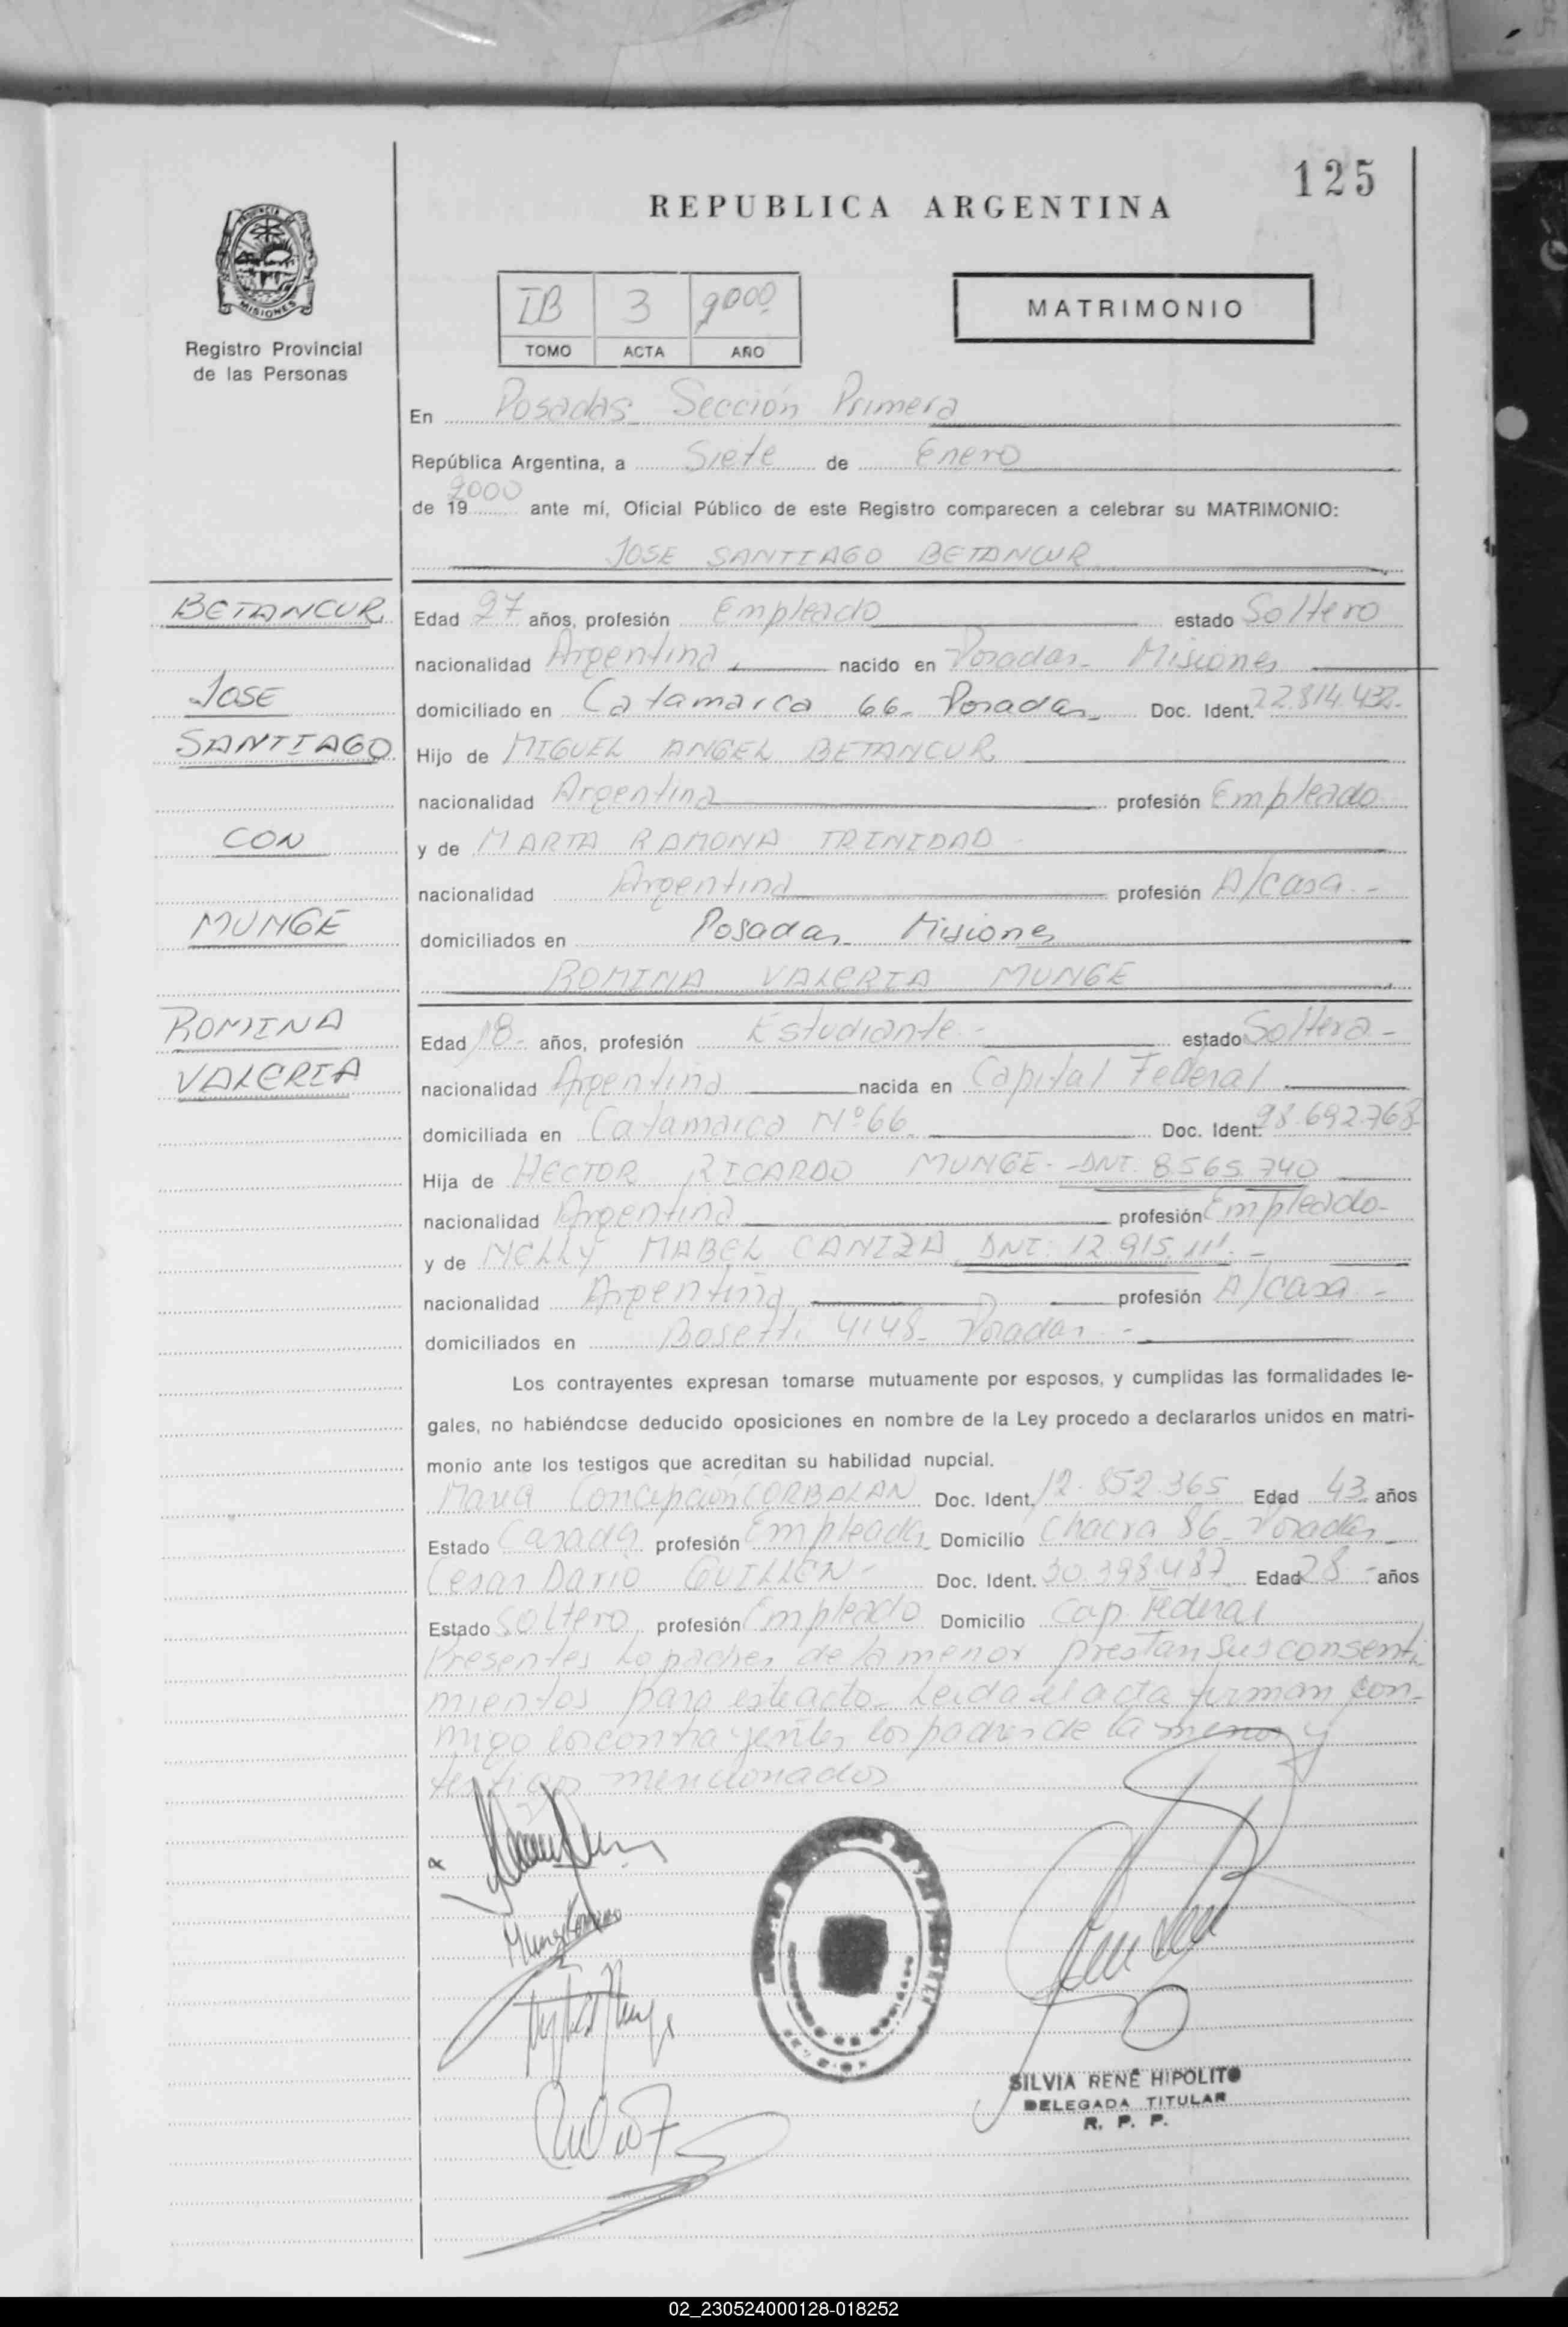 125
REPUBLICA ARGENTINA
MISIONES
Registro Provincial
de las Personas
IB 3 2000
TOMO ACTA AÑO
MATRIMONIO
En Posadas Sección Primera
República Argentina, a Siete de Enero
de 19 2000 ante mí, Oficial Público de este Registro comparecen a celebrar su MATRIMONIO:
JOSE SANTIAGO BETANCUR
BETANCUR
JOSE
SANTIAGO
CON
MUNGE
ROMINA
VALERIA
Edad 27 años, profesión Empleado estado Soltero
nacionalidad Argentina nacido en Posadas - Misiones
domiciliado en Catamarca 66 - Posadas - Doc. Ident. 22.814.432-
Hijo de MIGUEL ANGEL BETANCUR
nacionalidad Argentina profesión Empleado
y de MARTA RAMONA TRINIDAD
nacionalidad Argentina profesión A/casa -
domiciliados en Posadas Misiones
ROMINA VALERIA MUNGE
Edad 18 - años, profesión Estudiante - estado Soltera -
nacionalidad Argentina nacida en Capital Federal
domiciliada en Catamarca Nº 66 Doc. Ident. 28.692.768
Hija de HECTOR RICARDO MUNGE - DNI. 8.565.740
nacionalidad Argentina profesión Empleado -
y de NELLY MABEL CANIZA DNI: 12.915.111 -
nacionalidad Argentina profesión A/casa -
domiciliados en Bosetti 4148 - Posadas -
Los contrayentes expresan tomarse mutuamente por esposos, y cumplidas las formalidades le-
gales, no habiéndose deducido oposiciones en nombre de la Ley procedo a declararlos unidos en matri-
monio ante los testigos que acreditan su habilidad nupcial.
Maria Concepción CORBALAN Doc. Ident. 12.852.365 Edad 43 años
Estado Casada profesión Empleada Domicilio Chacra 86 - Posadas
Cesar Dario GUILLEN - Doc. Ident. 30.398.487 Edad 28 - años
Estado Soltero profesión Empleado Domicilio Cap. Federal
Presentes lo padres de la menor prestan sus consenti
mientos para este acto - Leida el acta firman con-
migo los contrayentes, los padres de la menor y
testigos mencionados
SILVIA RENÉ HIPOLITO
DELEGADA TITULAR
R. P. P.
02_230524000128-018252